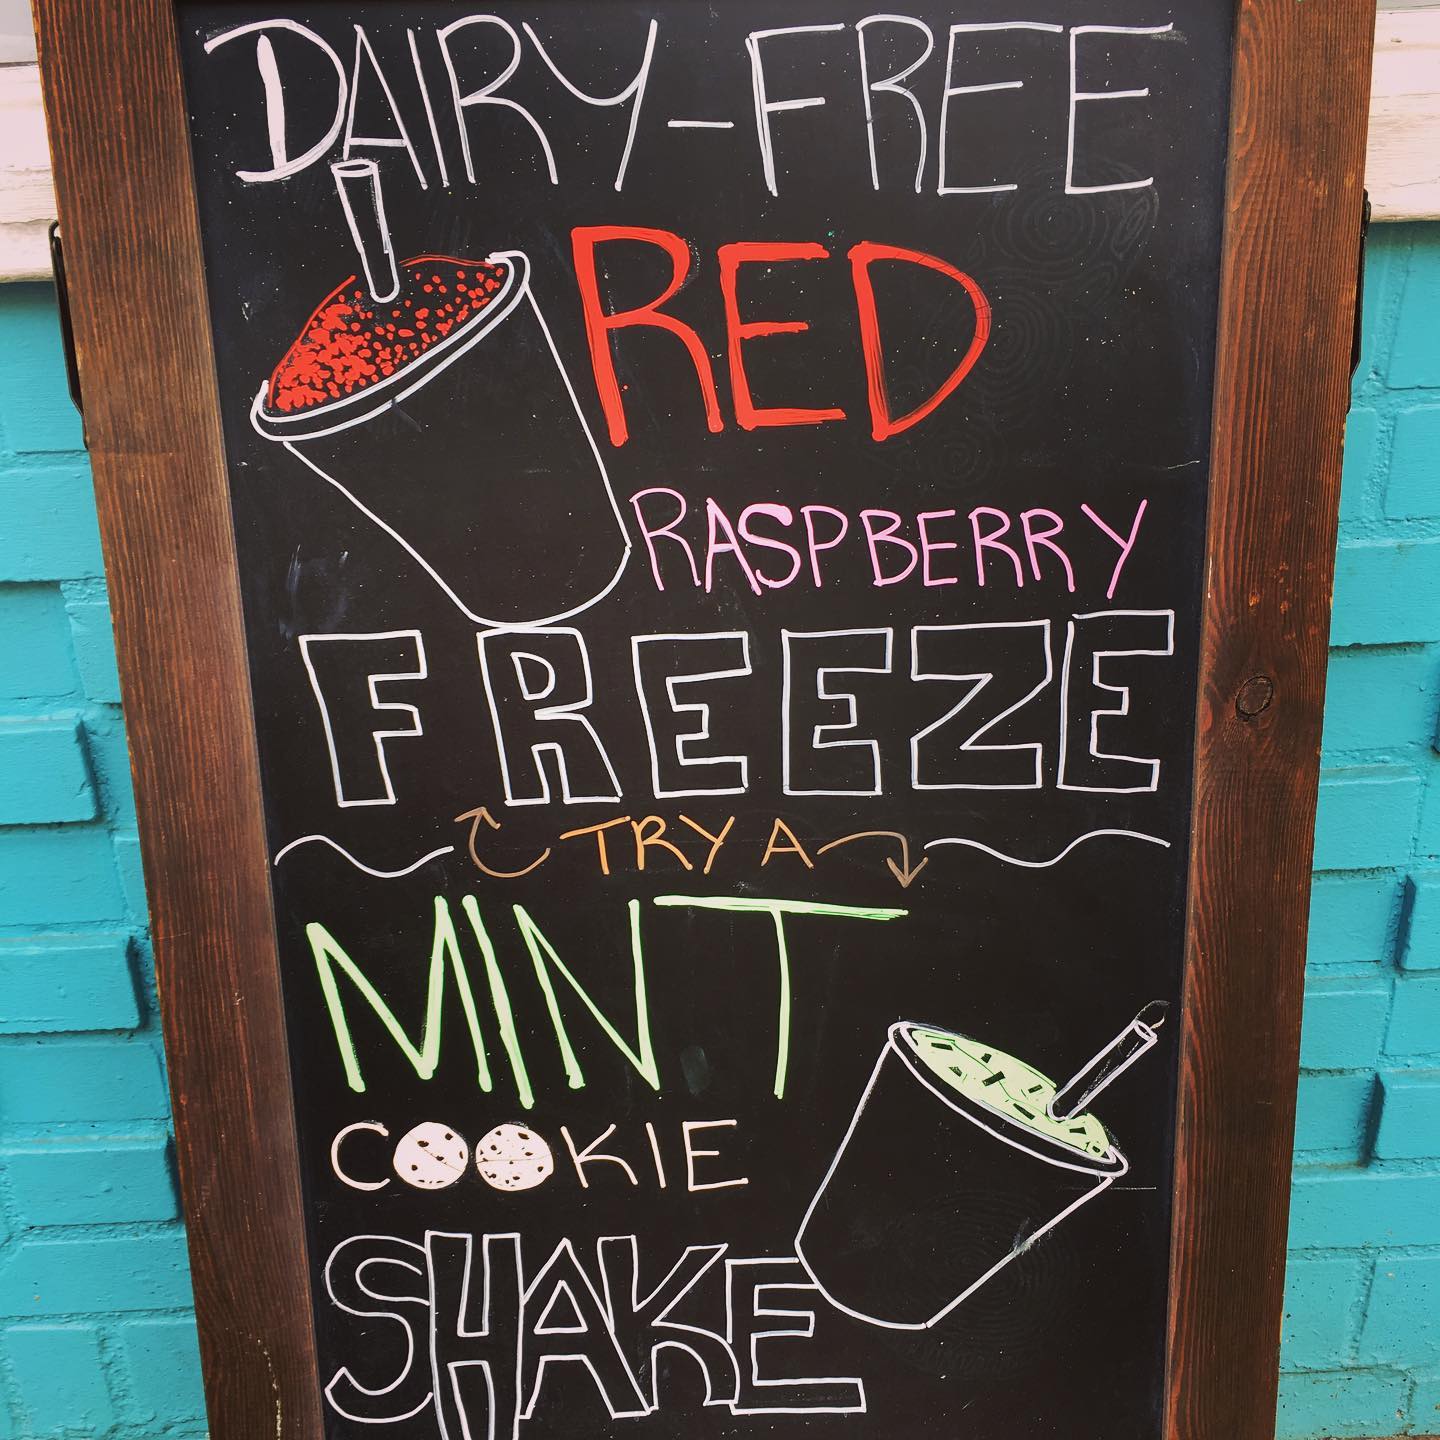 DAIRY-FREE
RED
RASPBERRY
FREEZE
TRY A
MINT
COOKIE
SHAKE